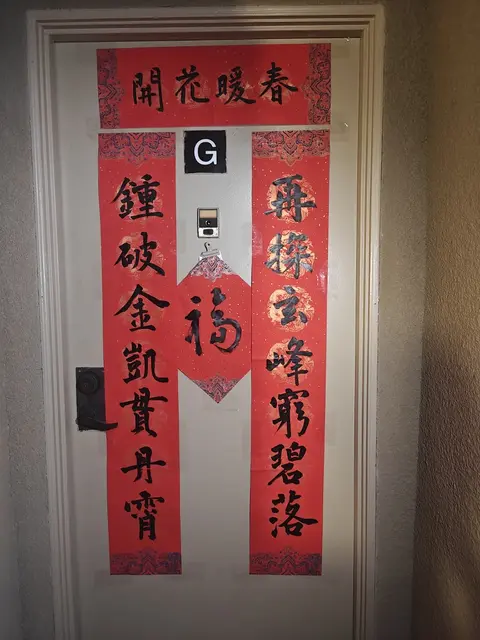 春暖花開
再探玄峰窮碧落
鍾破金凱貫丹霄
福
G